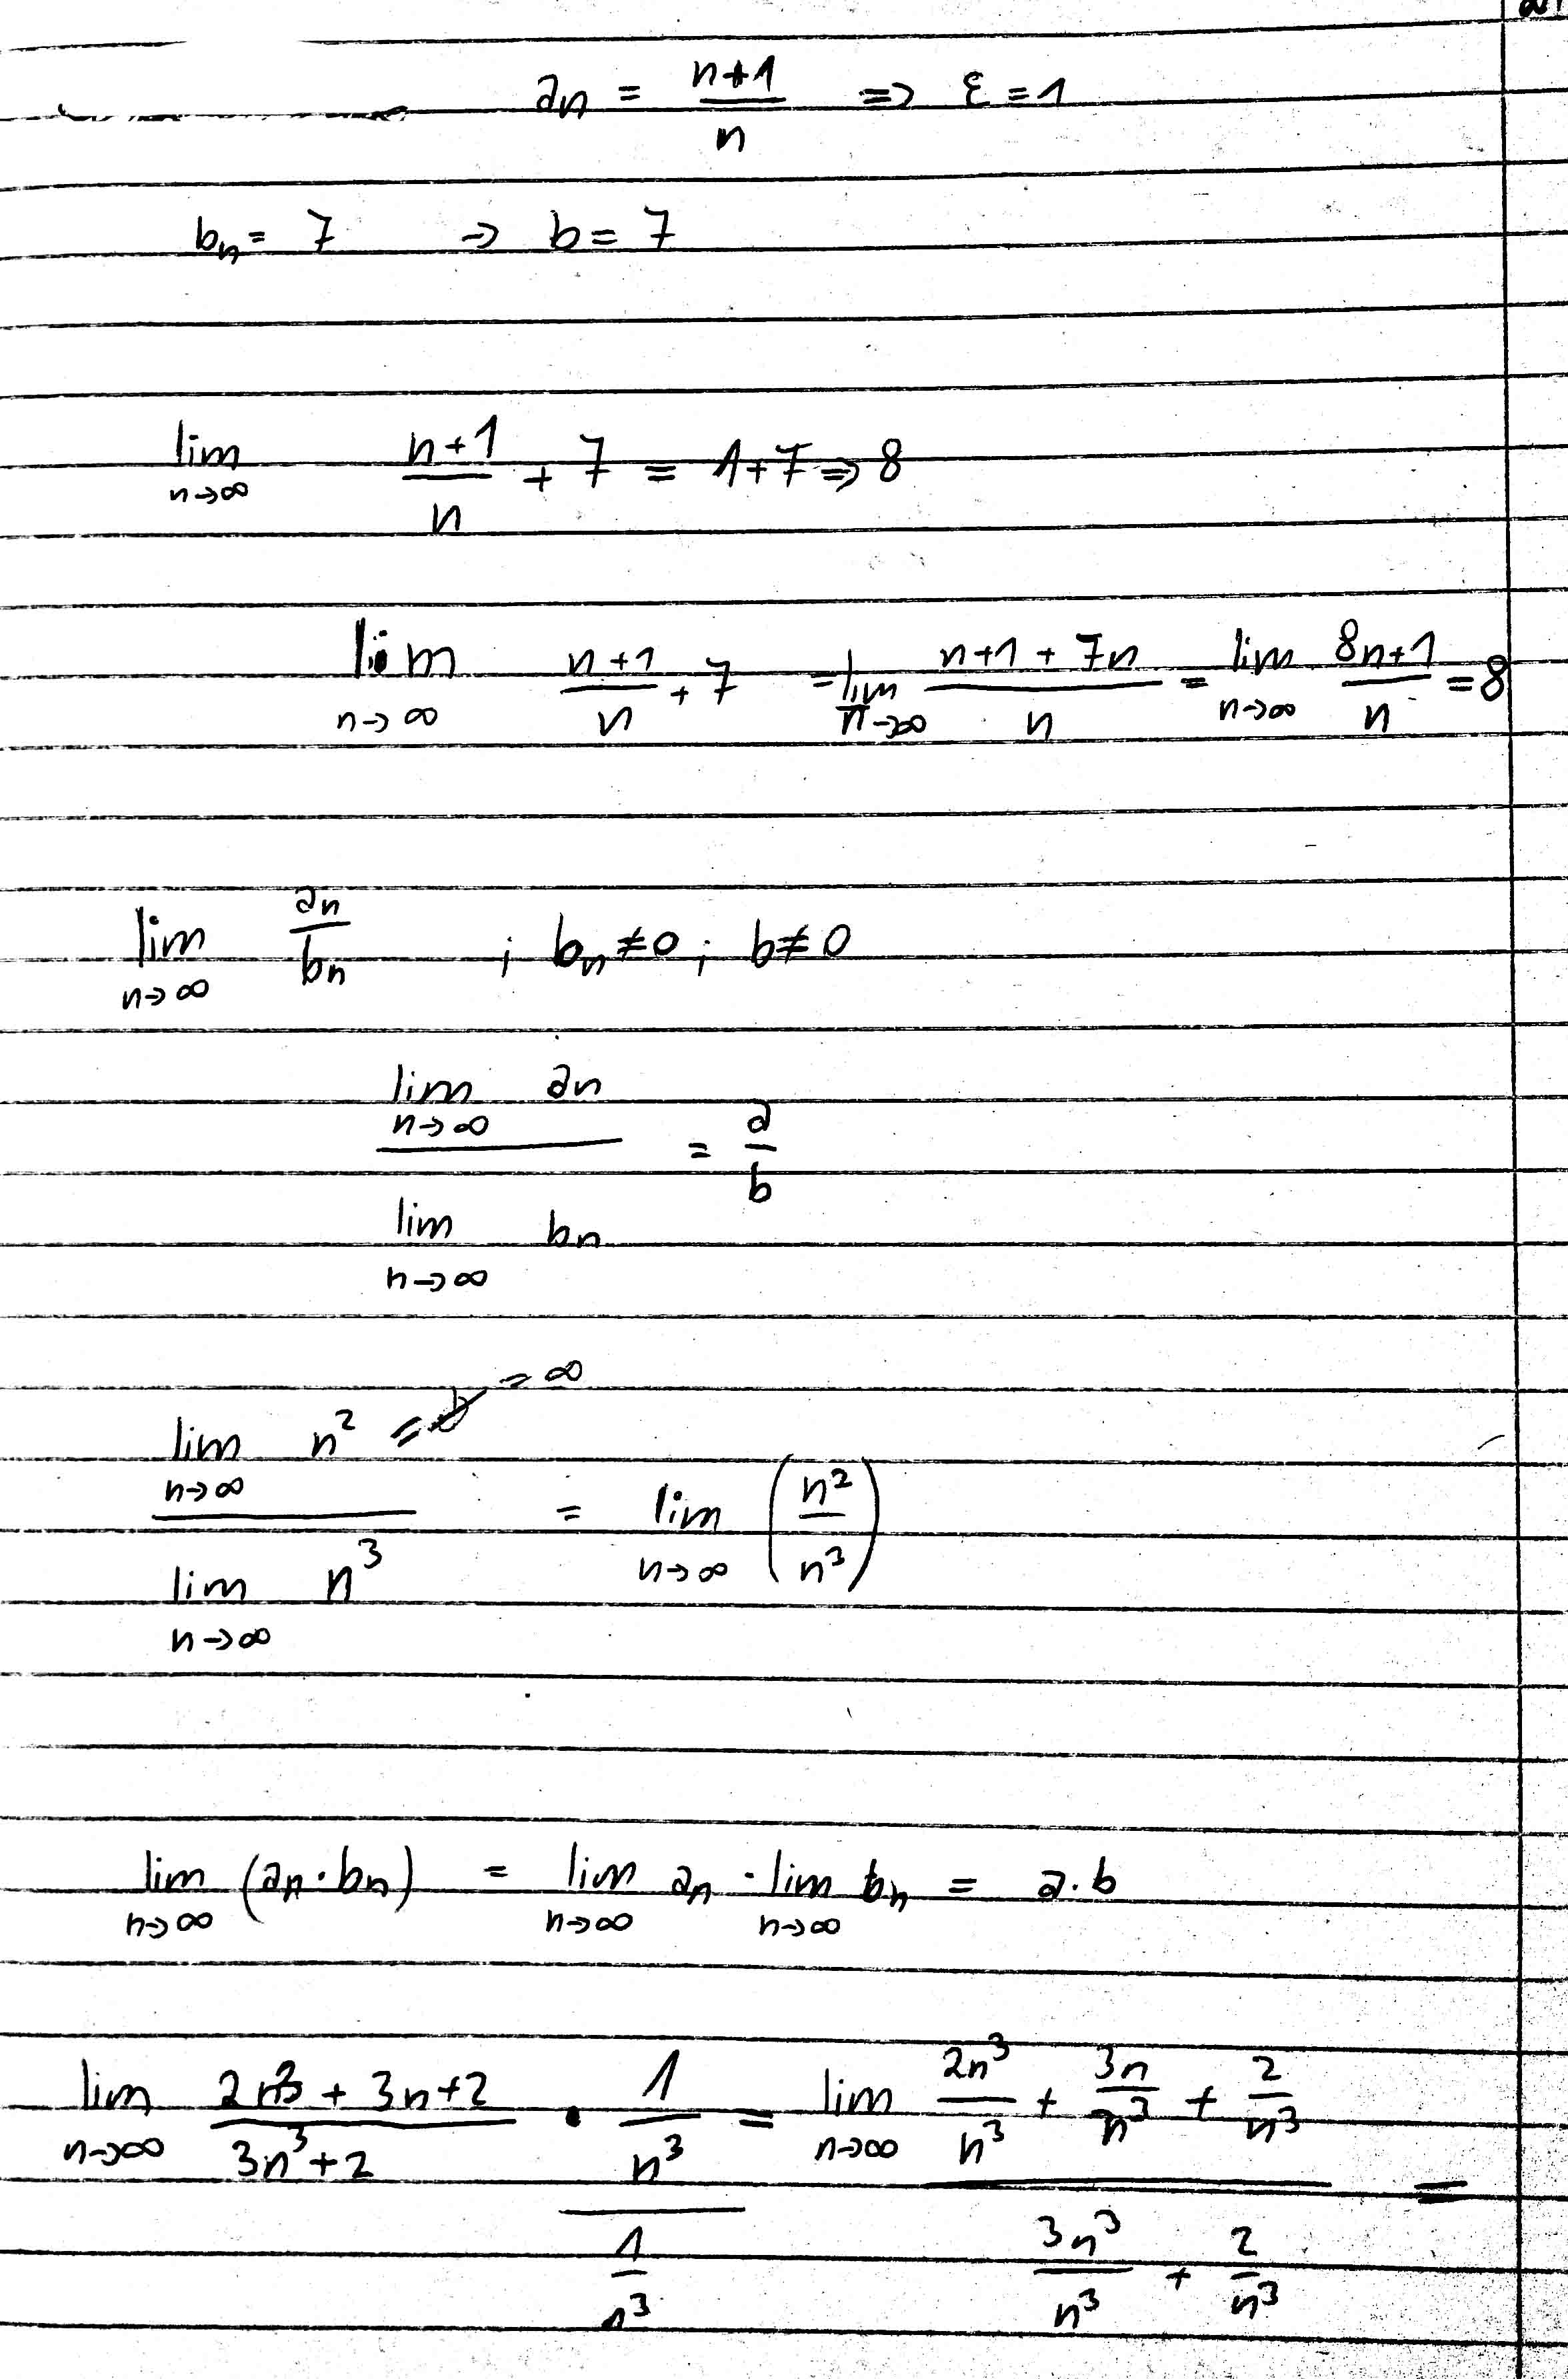 an = (n+1)/n => ε = 1
bn = 7 → b = 7
lim n→∞ (n+1)/n + 7 = 1+7 => 8
lim n→∞ (n+1)/n + 7 = lim n→∞ (n+1+7n)/n = lim n→∞ (8n+1)/n = 8
lim n→∞ an/bn ; bn ≠ 0 ; b ≠ 0
(lim n→∞ an)/(lim n→∞ bn) = a/b
(lim n→∞ n² = = ∞)/(lim n→∞ n³) = lim n→∞ (n²/n³)
lim n→∞ (an · bn) = lim n→∞ an · lim n→∞ bn = a · b
lim n→∞ (2n³ + 3n + 2)/(3n³ + 2) · (1/n³)/(1/n³) = lim n→∞ (2n³/n³ + 3n/n³ + 2/n³)/(3n³/n³ + 2/n³) =